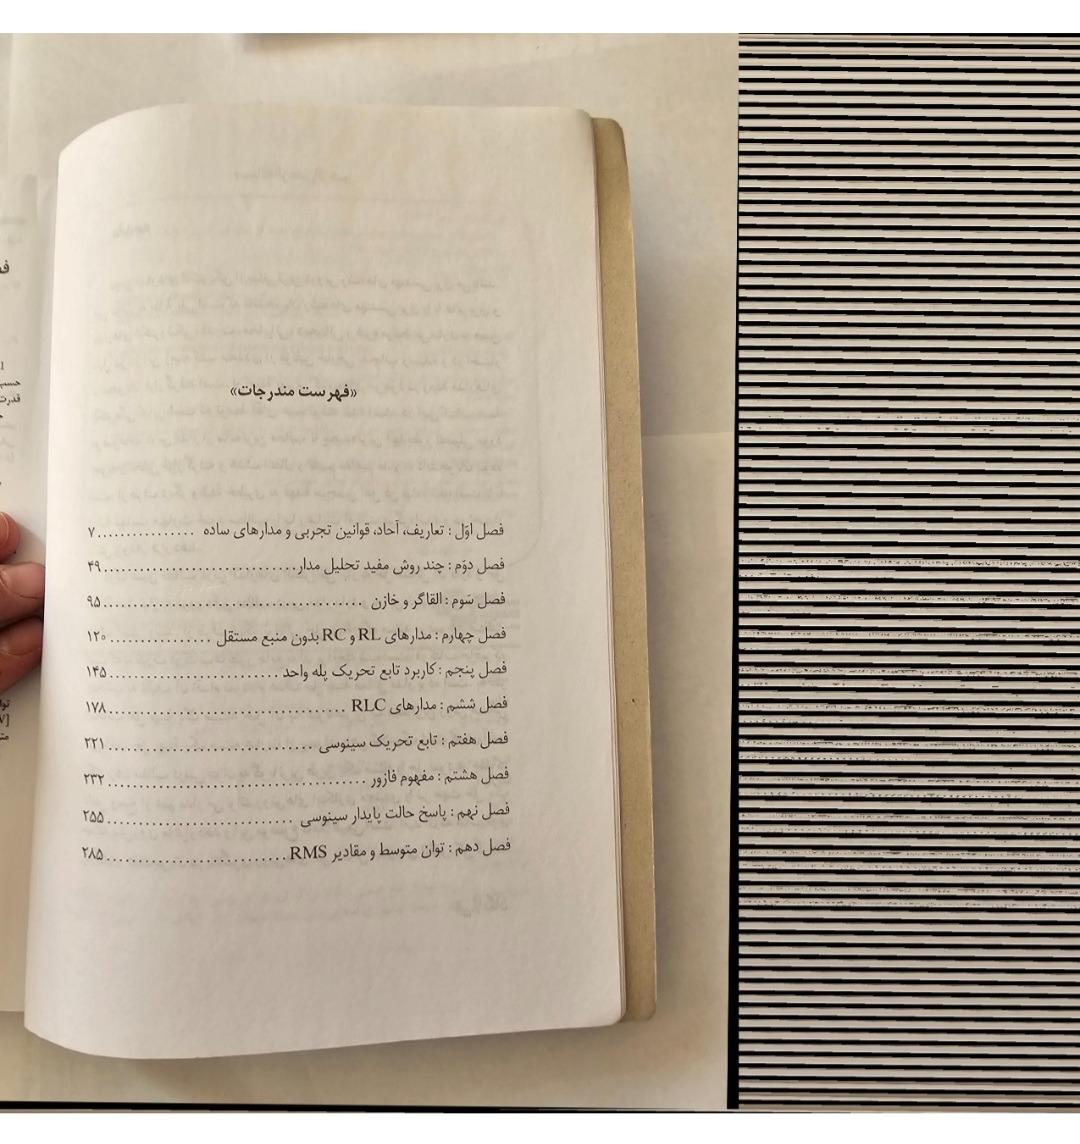 «فهرست مندرجات»
فصل اوّل : تعاریف، آحاد، قوانین تجربی و مدارهای ساده ................ ۷
فصل دوّم : چند روش مفید تحلیل مدار ............................... ۴۹
فصل سَوم : القاگر و خازن .......................................... ۹۵
فصل چهارم : مدارهای RL و RC بدون منبع مستقل ................ ۱۲۰
فصل پنجم : کاربرد تابع تحریک پله واحد ........................... ۱۴۵
فصل ششم : مدارهای RLC ...................................... ۱۷۸
فصل هفتم : تابع تحریک سینوسی ................................. ۲۲۱
فصل هشتم : مفهوم فازور .......................................... ۲۳۲
فصل نهم : پاسخ حالت پایدار سینوسی .............................. ۲۵۵
فصل دهم : توان متوسط و مقادیر RMS ............................. ۲۸۵